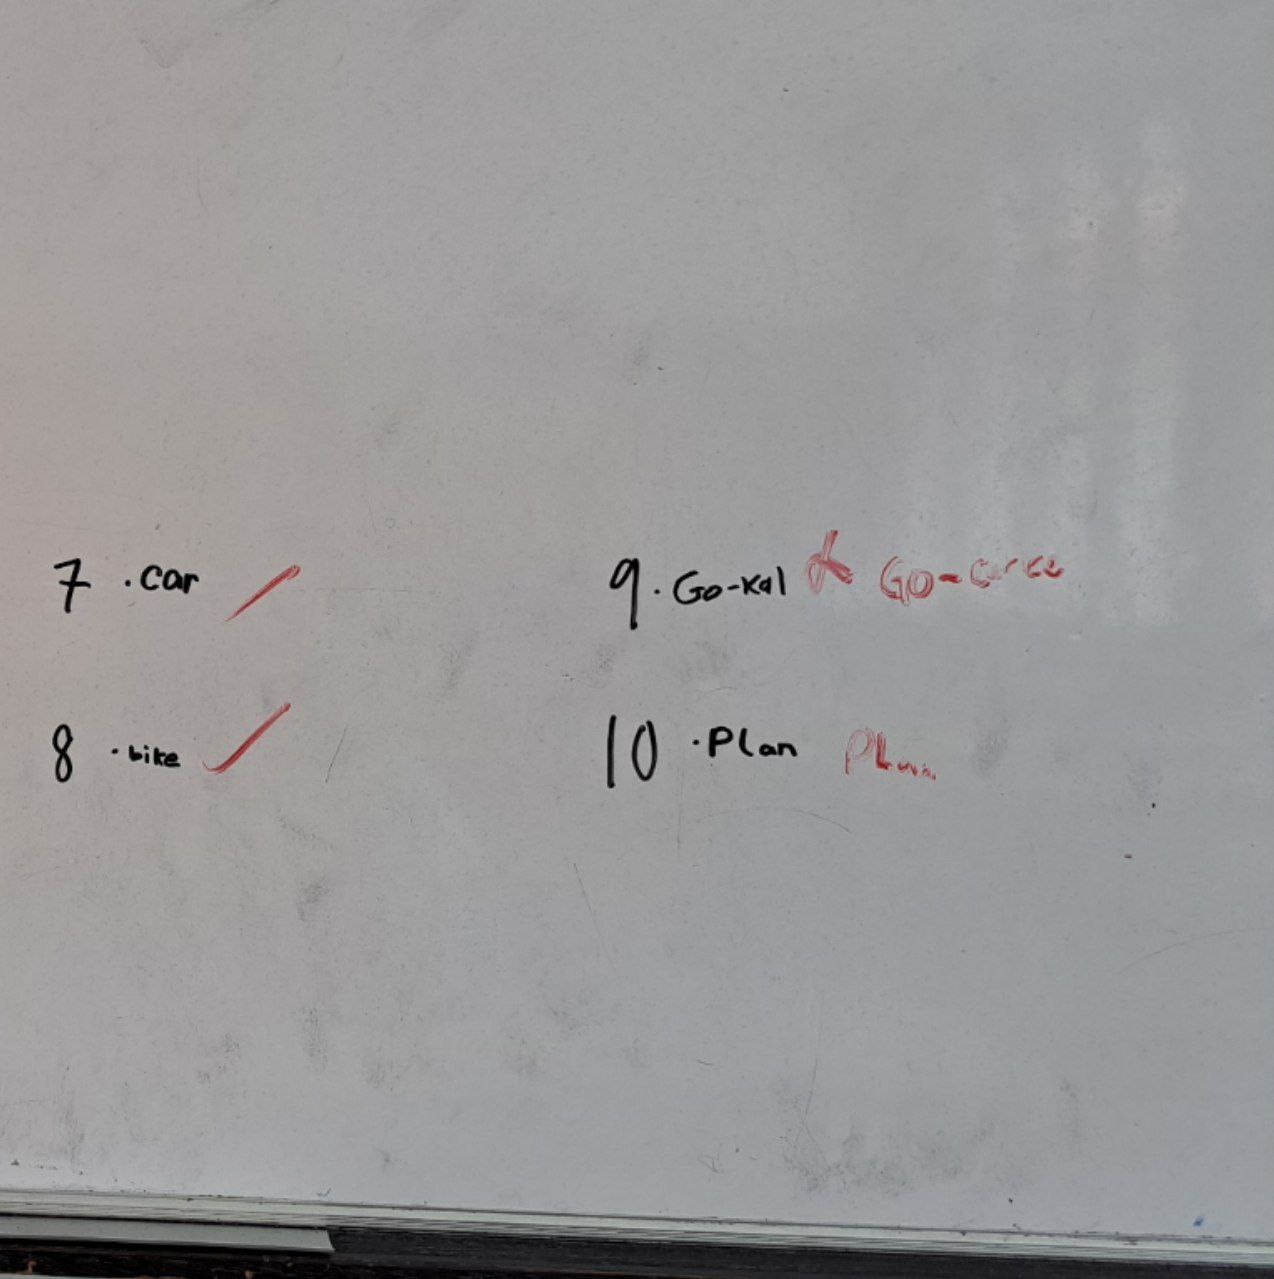 7 . car
9. Go-kal Go-
8 . bike
10 . Plan